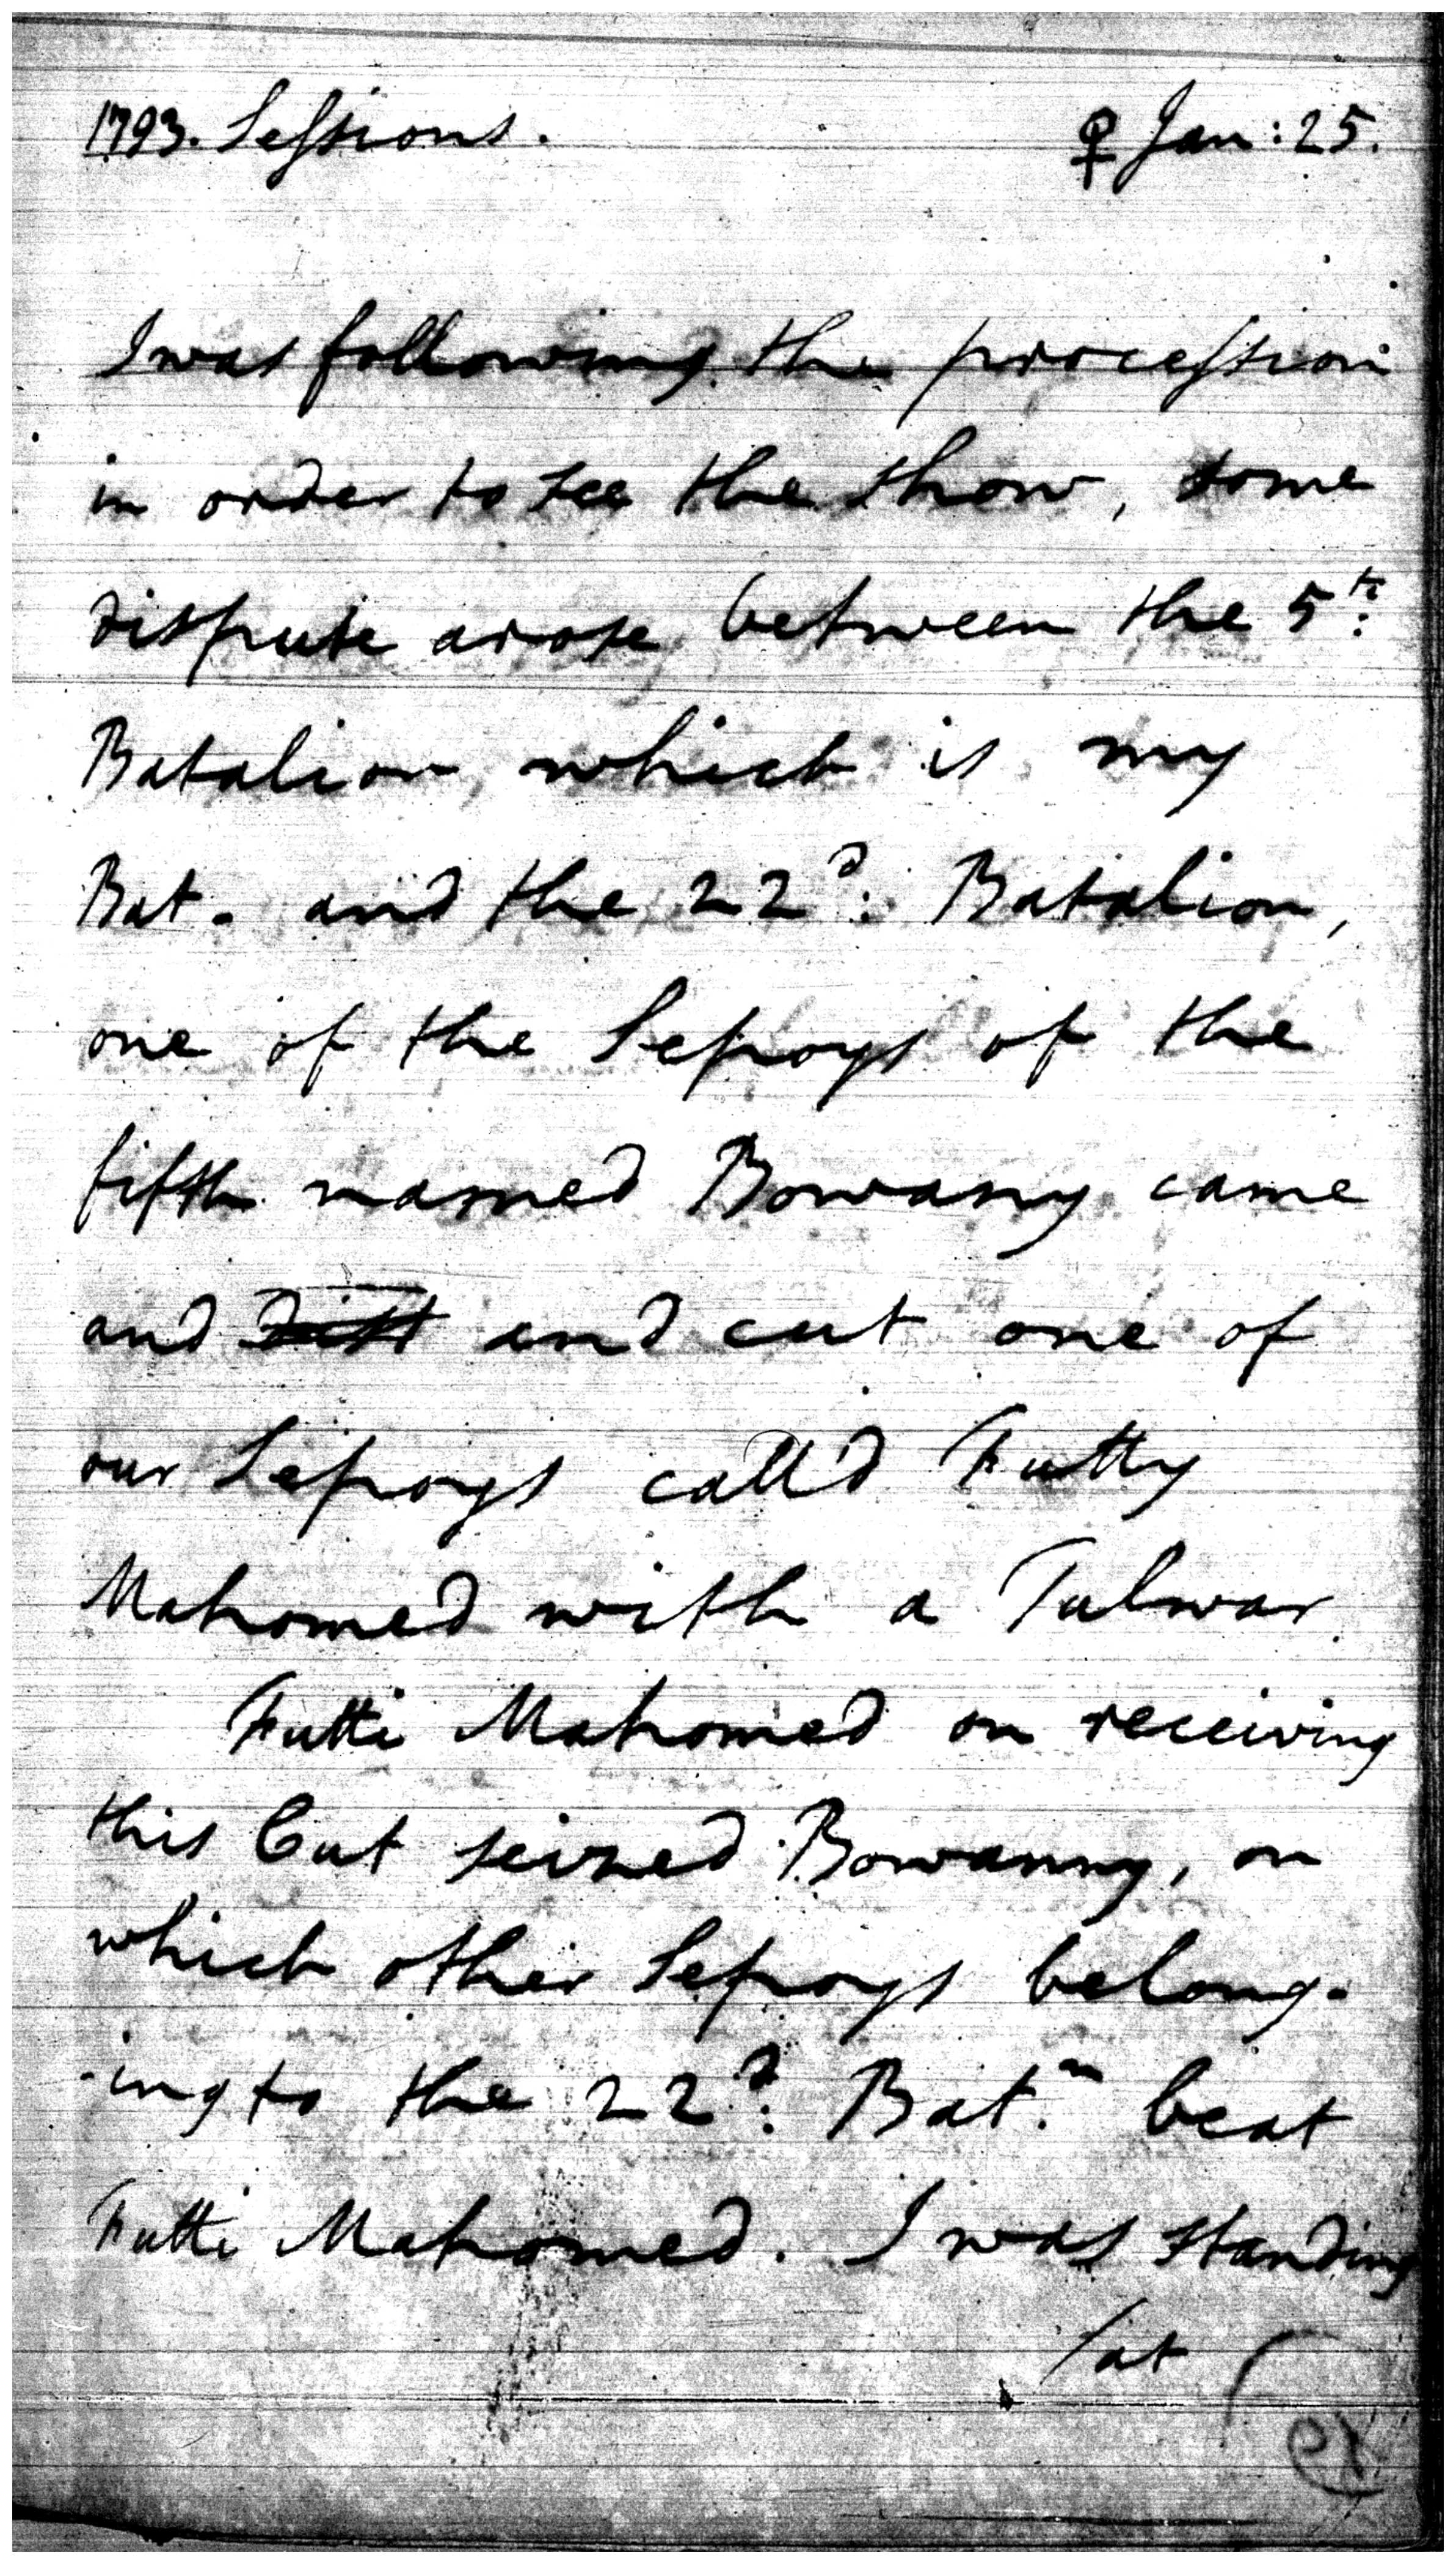 1793. Sessions. ♀ Jan: 25.
I was following the procession
in order to see the show, some
dispute arose between the 5th:
Batalion which is my
Bat. and the 22d: Batalion,
one of the Sepoys of the
fifth named Bowany came
and and cut one of
our Sepoys call'd Futty
Mahomed with a Tulwar.
Futti Mahomed on receiving
this Cut seized Bowanny, on
which other Sepoys belong-
-ing to the 22d: Bat.n beat
Futti Mahomed. I was standing
/at